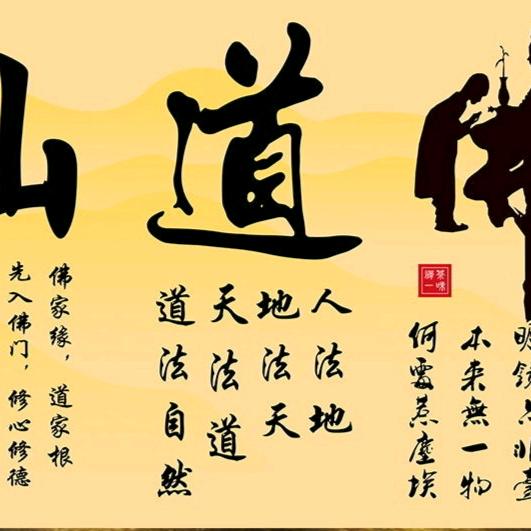 明镜亦非臺
本来無一物
何惹塵埃
茶味
禪一
道
人法地
地法天
天法道
道法自然
佛家缘，道家根
先入佛门，修心修德